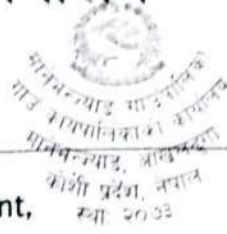 मानेभञ्ज्याङ गाउँपालिका
गाउँ कार्यपालिकाको कार्यालय
मानेभञ्ज्याङ, ओखलढुंगा
कोशी प्रदेश, नेपाल
nt,
स्था २०७३